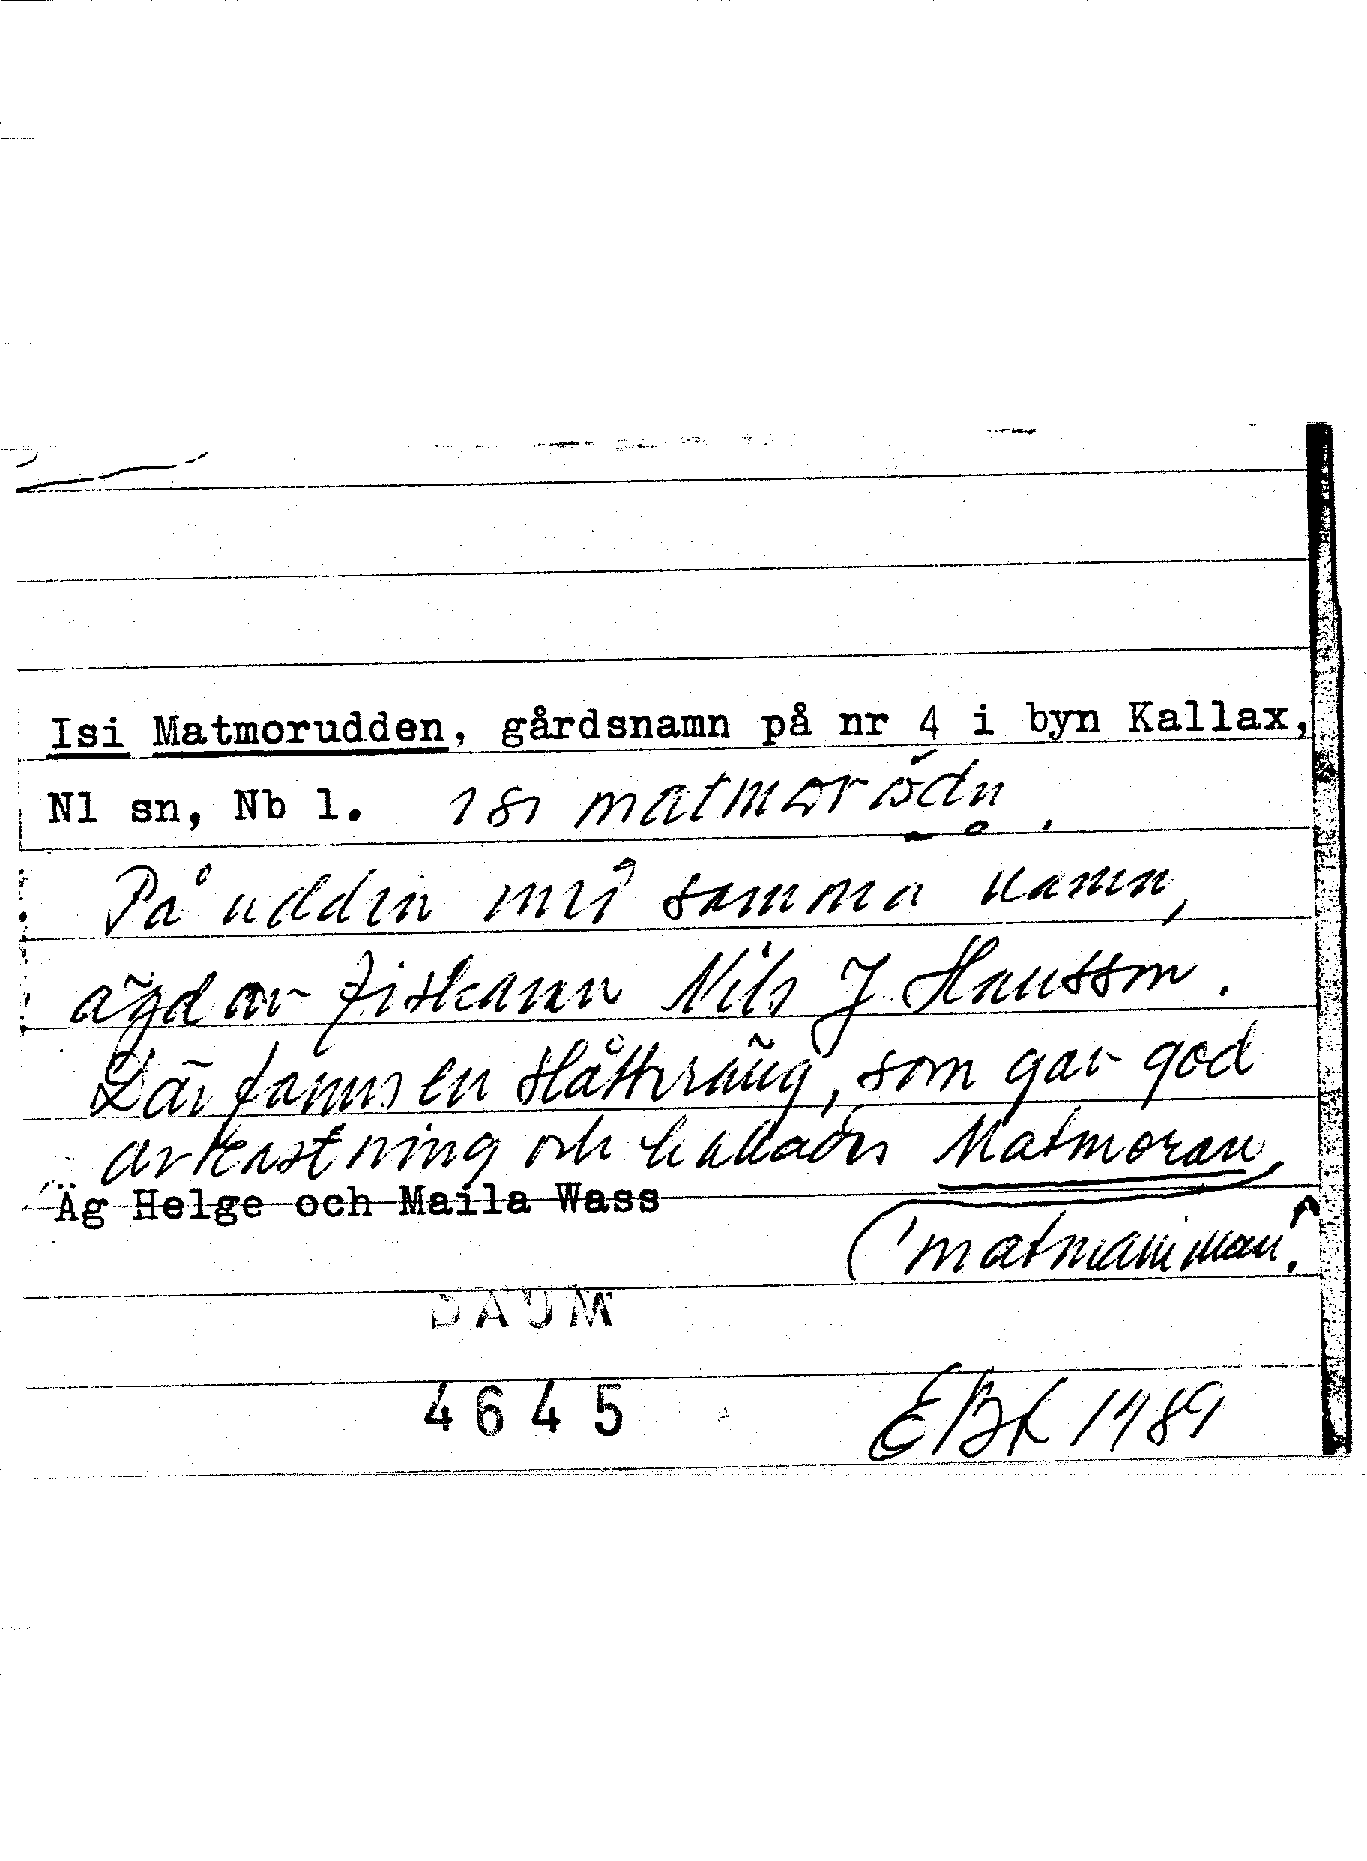 Isi Matmorudden, gårdsnamn på nr 4 i byn Kallax,
Nl sn, Nb l. isi matmorödn.
På udden med samma namn,
ägd av fiskaren Nils J Hansson.
Där fanns en slåtteräng, som gav god
avkastning och kallades Matmoran
Äg Helge och Maila Wass
(matmamman).
DAUM
4645
EBL 1989